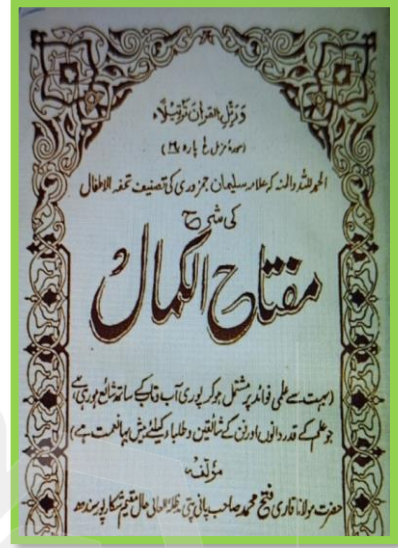 وَرَتِّلِ القُراٰنَ تَرْتِیْلًا
(سورۂ مزمل ع پارہ ۲۹)
الحمد للہ والمنہ کہ علامہ سلیمان جمزوری کی تصنیف تحفۃ الاطفال
کی شرح
مفتاح الکمال
(بہت سے علمی فوائد پر مشتمل ہو کر پوری آب و تاب کے ساتھ شائع ہو رہی ہے
جو علم کے قدر دانوں اور فن کے شائقین و طلباء کیلئے بیش بہا نعمت ہے)
مؤلفہ
حضرت مولانا قاری فتح محمد صاحب پانی پتی مدظلہ العالی حال مقیم شکارپور سندھ